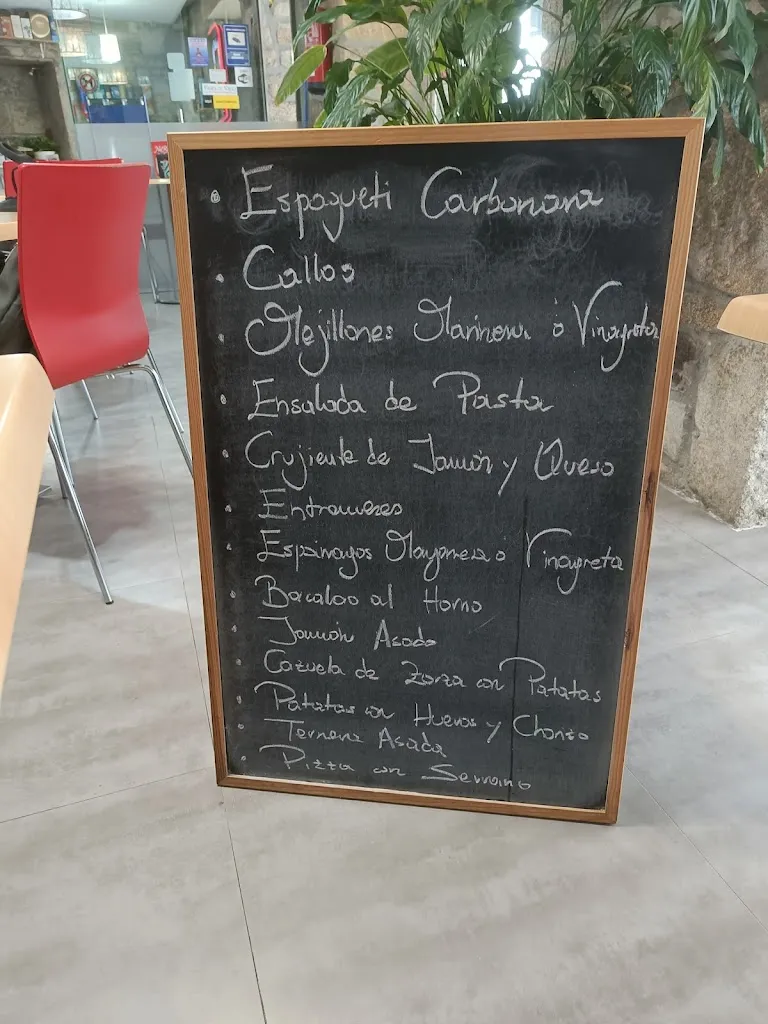 Espagueti Carbonara
Callos
Mejillones Marinera ó Vinagreta
Ensalada de Pasta
Crujiente de Jamón y Queso
Entremeses
Esparragos Mayonesa ó Vinagreta
Bacalao al Horno
Jamón Asado
Cazuela de Zorza con Patatas
Patatas con Huevos y Chorizo
Ternera Asada
Pizza con Serrano